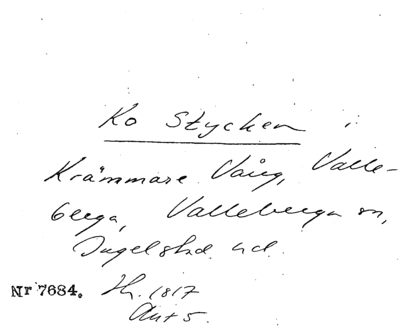 Ko Stycken i
Krämmare Vång, Valle-
berga, Valleberga sn,
Ingelstad hd.
Nr 7684. Th. 1817
Ant 5.